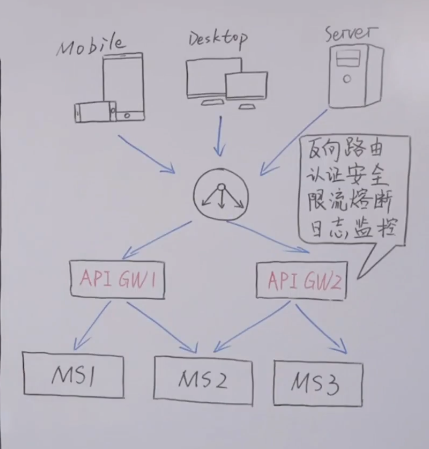 Mobile
Desktop
Server
反向路由
认证安全
限流熔断
日志监控
API GW1
API GW2
MS1
MS2
MS3